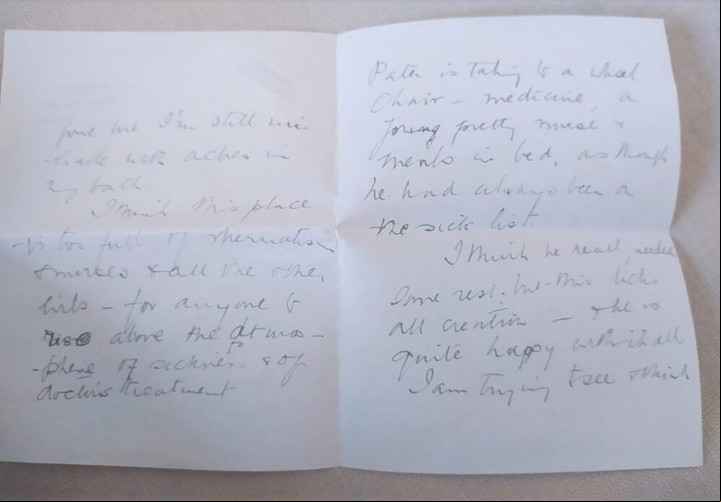 gone but I'm still mis-
-erable with aches in
my back.
I think this place
is too full of rheumatism
& nurses & all the other
- for anyone to
rise above the atmos-
-phere of sickness & of
doctors treatment
Pater is taking to a wheel
Chair - medicine, a
young pretty nurse &
meals in bed, as though
he had always been a
the sick list.
I think he really needed
some rest. but this licks
all creation - & he is
quite happy with it all
I am trying to see & think